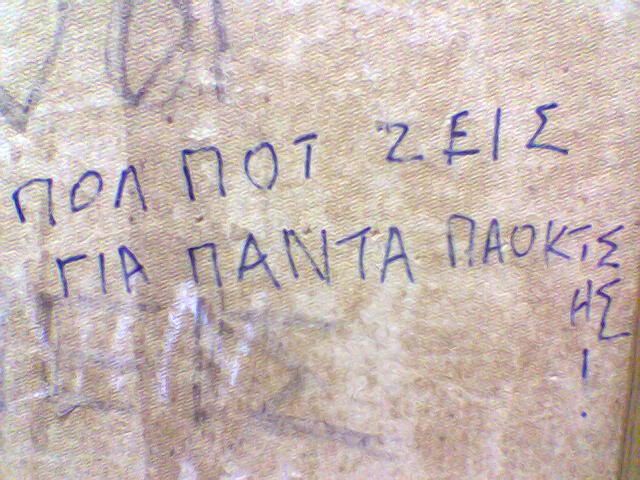 ΠΟΛ ΠΟΤ ΖΕΙΣ
ΓΙΑ ΠΑΝΤΑ ΠΑΟΚΤΣ
ΗΣ!